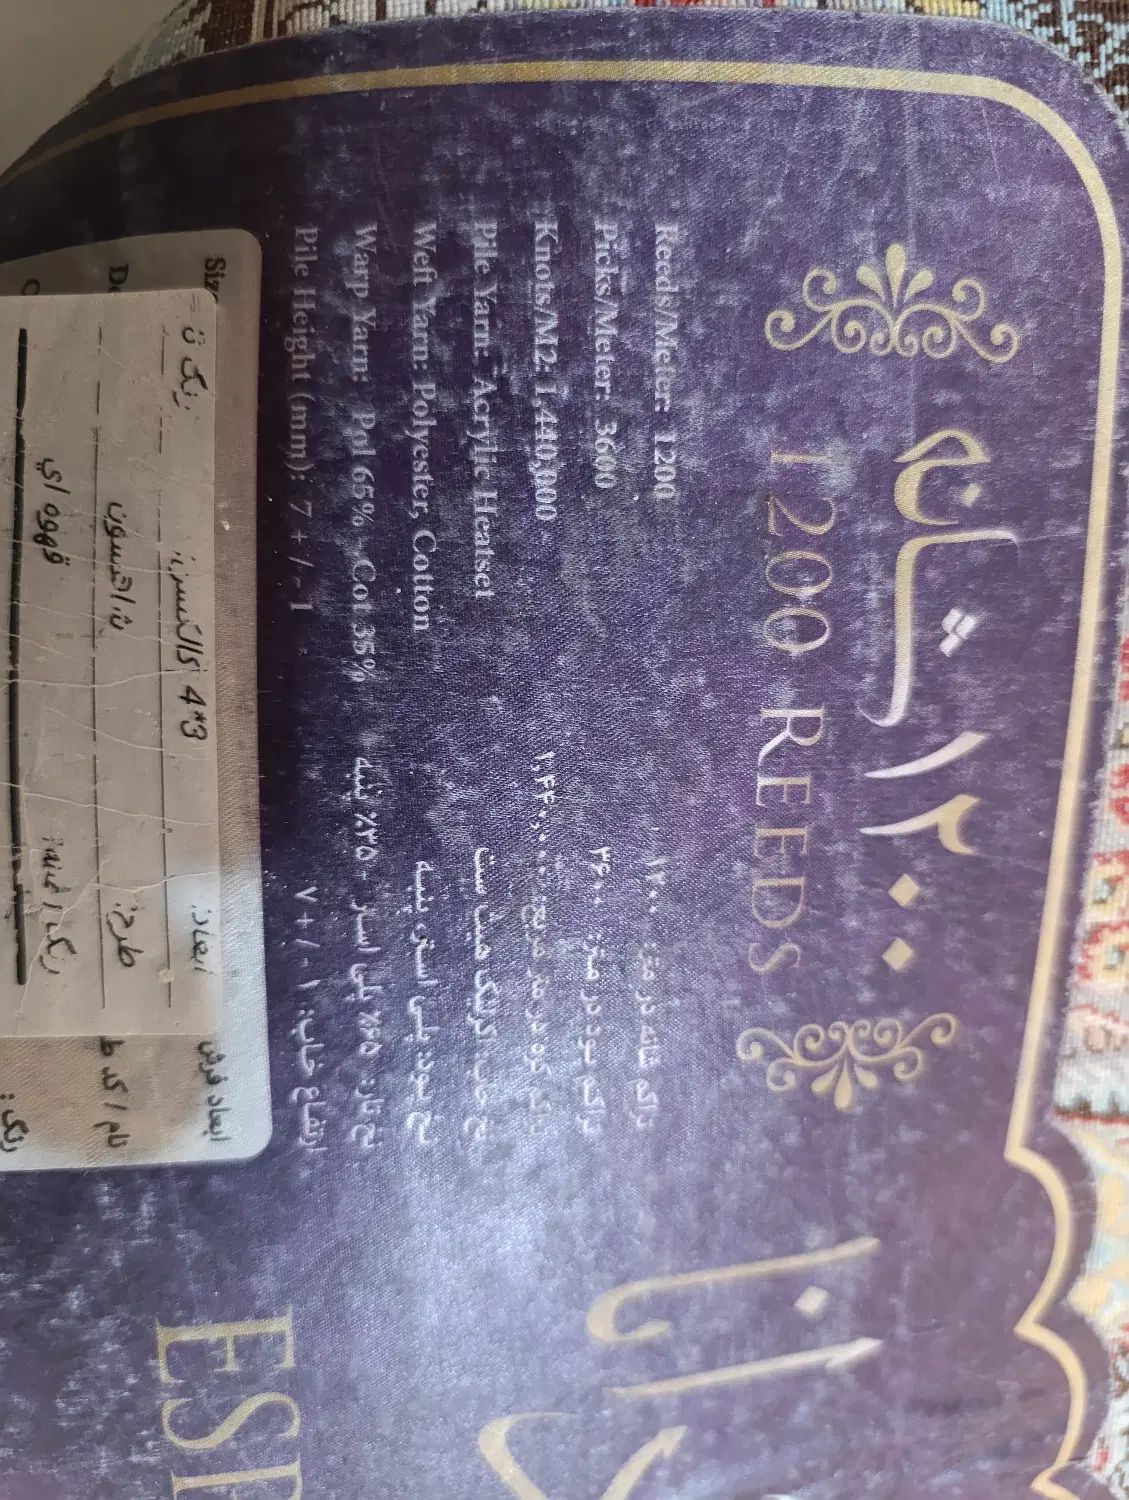 ۱۲۰۰ شانه
1200 REEDS
Reeds/Meter: 1200
تراکم شانه در متر: ۱۲۰۰
Picks/Meter: 3600
تراکم پود در متر: ۳۶۰۰
Knots/M2: 1,440,000
تراکم گره در متر مربع: ۱،۴۴۰،۰۰۰
Pile Yarn: Acrylic Heatset
نخ خاب: اکرولیک هیت ست
Weft Yarn: Polyester, Cotton
نخ پود: پلی استر، پنبه
Warp Yarn: Pol 65% , Cot 35%
نخ تار: ۶۵٪ پلی استر - ۳۵٪ پنبه
Pile Height (mm): 7 + / - 1
ارتفاع خاب: ۱ - / + ۷
ابعاد فرش
نام / کد ط
رنگ:
ابعاد: 3*4
طرح:
رنگ زمینه:
قهوه اي